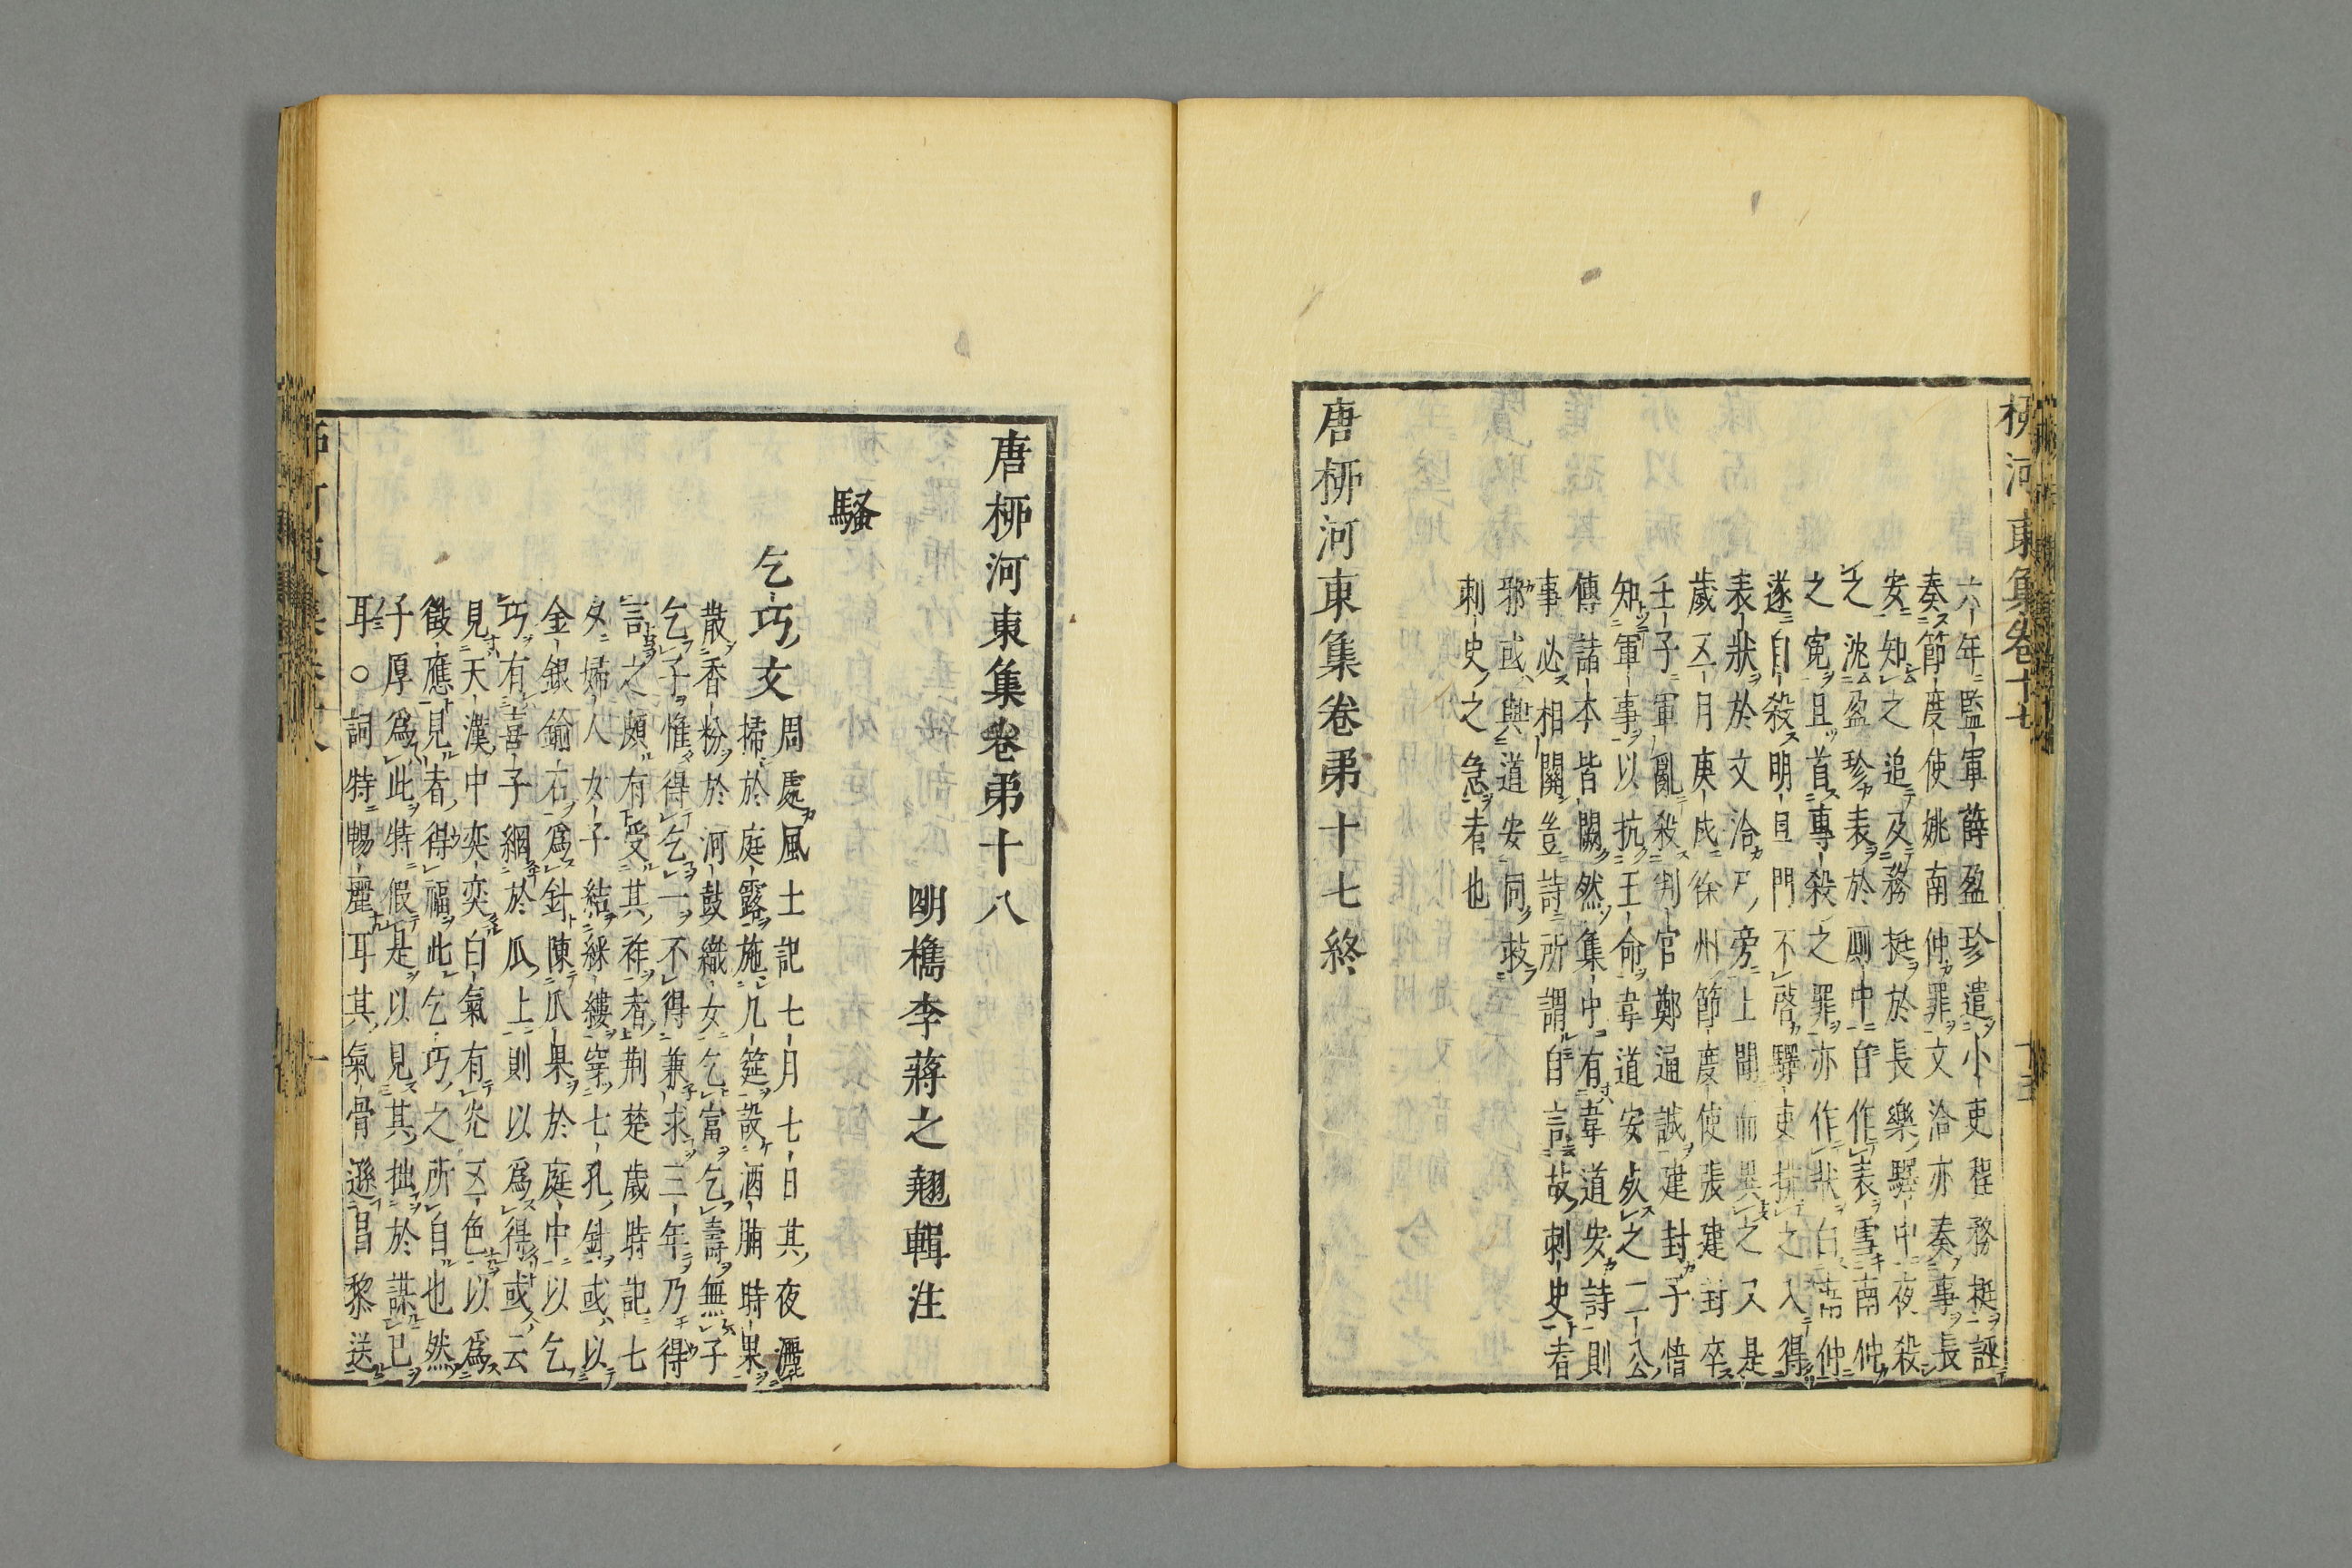 柳河東集卷十七
六年監軍薛盈珍遣小吏程務挺誣
奏節度使姚南仲罪文洽亦奏事長
安知之追及務挺於長樂驛中夜殺
之沈盈珍表於厠中自作表雪南仲
之寃且首專殺之罪亦作狀白南仲
遂自殺明旦門不啓驛吏排之入得
表狀於文洽尸旁上聞而異之又是
歲五月庚戌徐州節度使張建封卒
壬子軍亂殺判官鄭通誠建封子愔
知軍事以抗王命韋道安死之二公
傳諸本皆闕然集中有韋道安詩則
事必相關豈詩所謂自言故刺史者
邪或與道安同救
刺史之急者也
唐柳河東集卷弟十七終
唐柳河東集卷弟十八
明檇李蔣之翹輯注
騷
乞巧文
周處風土記七月七日其夜灑
掃於庭露施几筵設酒脯時果
散香粉於河鼓織女乞富乞壽無子
乞子惟得乞一不得兼求三年乃得
言之頗有受其祚者荆楚歲時記七
夕婦人女子結綵縷穿七孔針或以
金銀鍮石爲針陳瓜果於庭中以乞
巧有喜子網於瓜上則以爲得或云
見天漢中奕奕白氣有光五色以爲
徵應見者得福此乞巧之所自也然
子厚爲此特假是以見其拙於謀已
耳○詞特暢麗耳其氣骨遜昌黎送